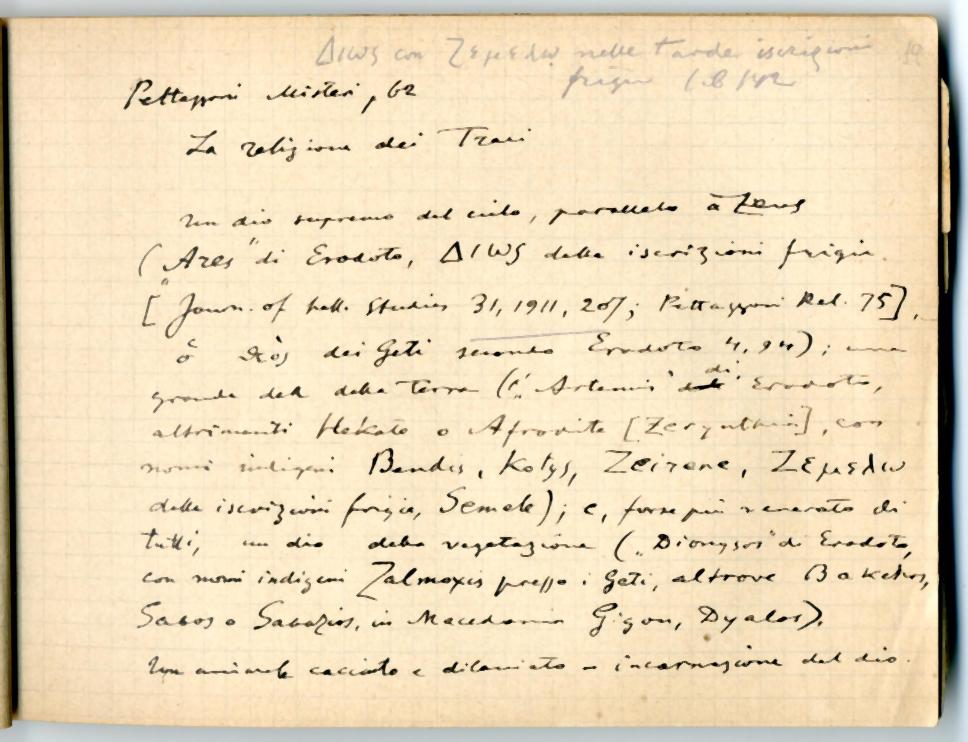 Διως con Ζεμελω nelle tarde iscrizioni
frigie
Pettazzoni Misteri, 62
La religione dei Traci
Un dio supremo del cielo, parallelo a Zeus
("Ares" di Erodoto, ΔΙWς delle iscrizioni frigie
[Journ. of hell. Studies 31, 1911, 207; Pettazzoni Rel. 75],
dei Geti secondo Erodoto 4, 94); una
grande dea della terra (l'"Artemis" di Erodoto,
altrimenti Hekate o Afrodite [Zerynthia], con
nomi indigeni Bendis, Kotys, Zeirene, Ζεμελω
delle iscrizioni frigie, Semele); e, forse più venerato di
tutti, un dio della vegetazione ("Dionysos" di Erodoto,
con nomi indigeni Zalmoxis presso i Geti, altrove Bakchos,
Sabos o Sabazios, in Macedonia Gigon, Dyalos).
Un animale cacciato e dilaniato = incarnazione del dio.